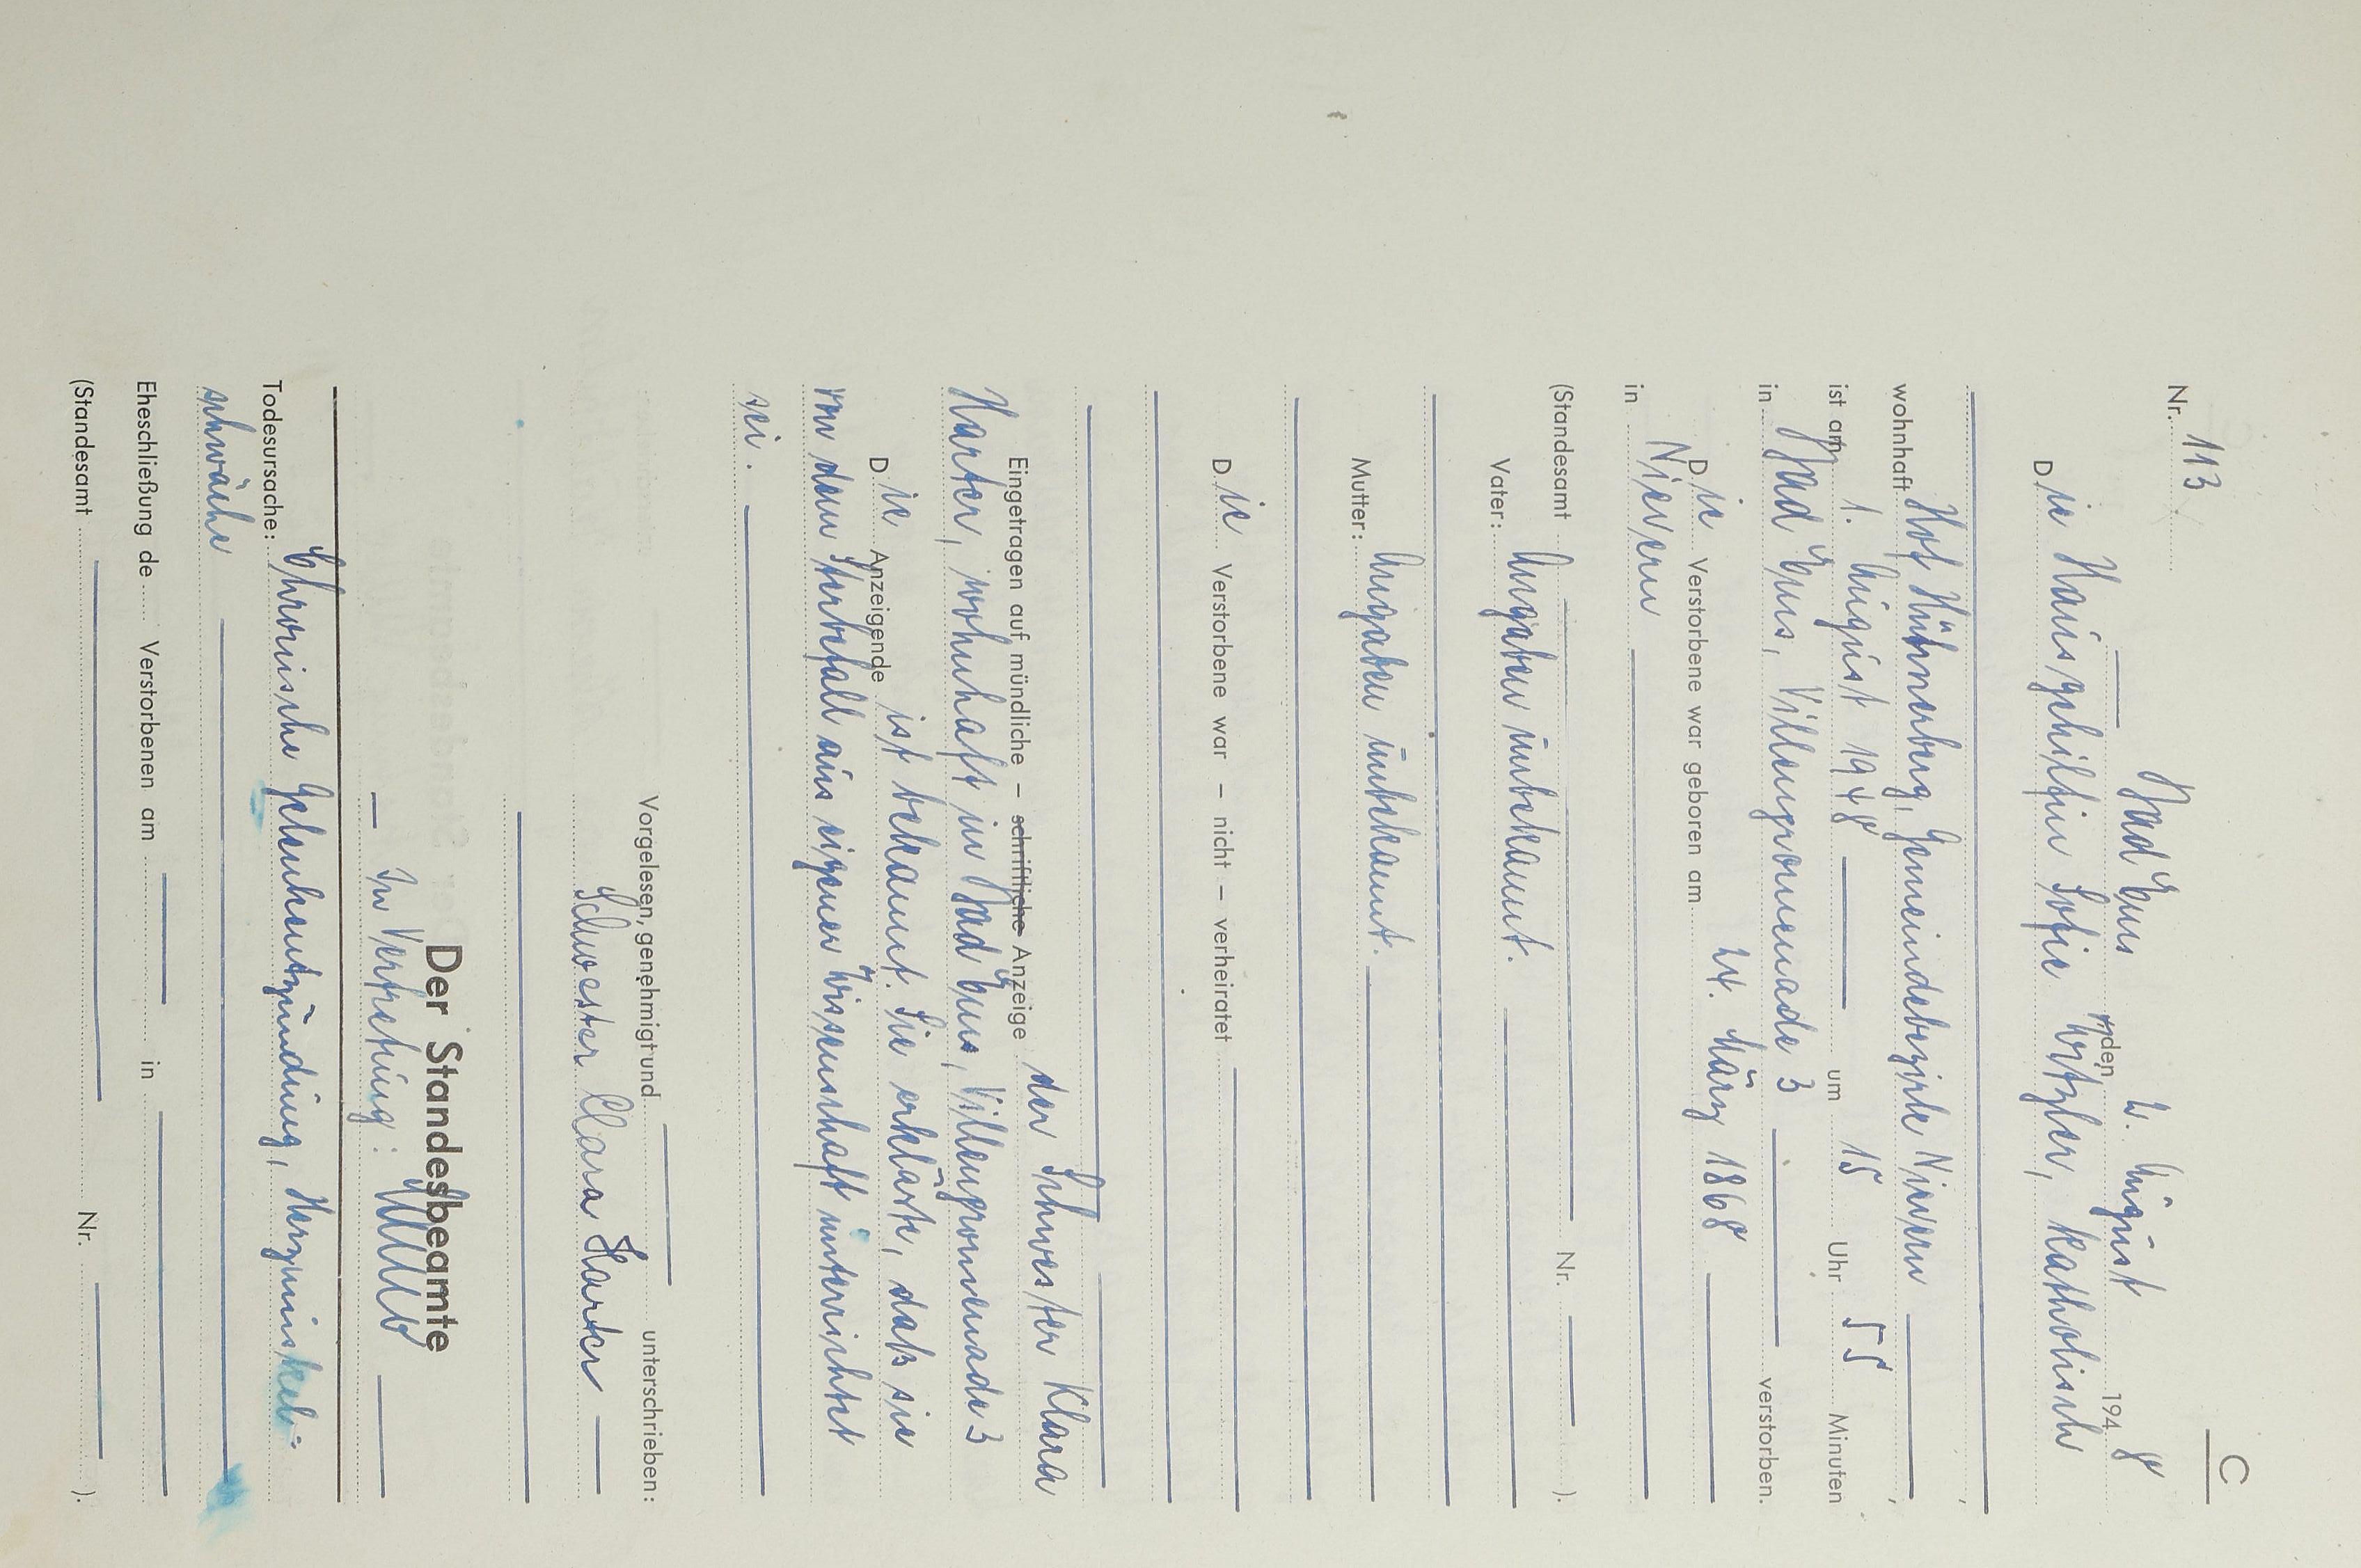 C
Nr. 113
Bad Ems, den 2. August 1948
Die Hausgehilfin Sofie Wetzler, katholisch
,
wohnhaft Hof Hühnerberg, Gemeindebezirk Nievern ,
ist am 1. August 1948 um 15 Uhr 55 Minuten
in Bad Ems, Villenpromenade 3 verstorben.
Die Verstorbene war geboren am 24. März 1868
in Nievern
(Standesamt Nr. ).
Vater: Angaben unbekannt.
Mutter: Angaben unbekannt.
Die Verstorbene war – nicht – verheiratet
Eingetragen auf mündliche – schriftliche Anzeige der Schwester Klara
Harter, wohnhaft in Bad Ems, Villenpromenade 3
Die Anzeigende ist bekannt. Sie erklärte, daß sie
von dem Sterbefall aus eigener Wissenschaft unterrichtet
sei.
Vorgelesen, genehmigt und unterschrieben:
Schwester Clara Harter
Der Standesbeamte
In Vertretung:
Todesursache: Chronische Gelenkentzündung, Herzmuskel-
schwäche
Eheschließung de Verstorbenen am in
(Standesamt Nr. ).